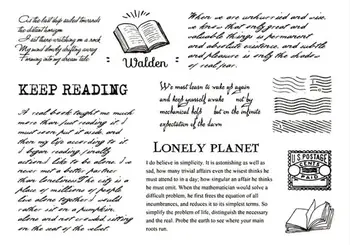 As the last ship sailed towards
the distant horizon
I sat there watching on a rock
My mind slowly drifting away
Forming into my dream tale
Walden
When we are unhurried and wise,
we know that only great and
valuable things is permanent
and absolute existence, and subtle
and pleasure is only the shadow
of real fear.
KEEP READING
We must learn to wake up again
and keep yourself awake not by
mechanical help but on the infinite
expectation of the dawn
A real book taught me much
more than just reading it. I
must soon put it aside, and
then my life according to it.
I began reading, finally
actions. I like to be alone. I've
never met a better partner
than loneliness. The city is a
place of millions of people
live alone together. I would
rather sit on a pumpkin,
alone and not crowded sitting
on the seat of the velvet.
LONELY PLANET
I do believe in simplicity. It is astonishing as well as
sad, how many trivial affairs even the wisest thinks he
must attend to in a day; how singular an affair he thinks
he must omit. When the mathematician would solve a
difficult problem, he first frees the equation of all
incumbrances, and reduces it to its simplest terms. So
simplify the problem of life, distinguish the necessary
and the real. Probe the earth to see where your main
roots run.
U.S. POSTAGE
CENTS
PAID